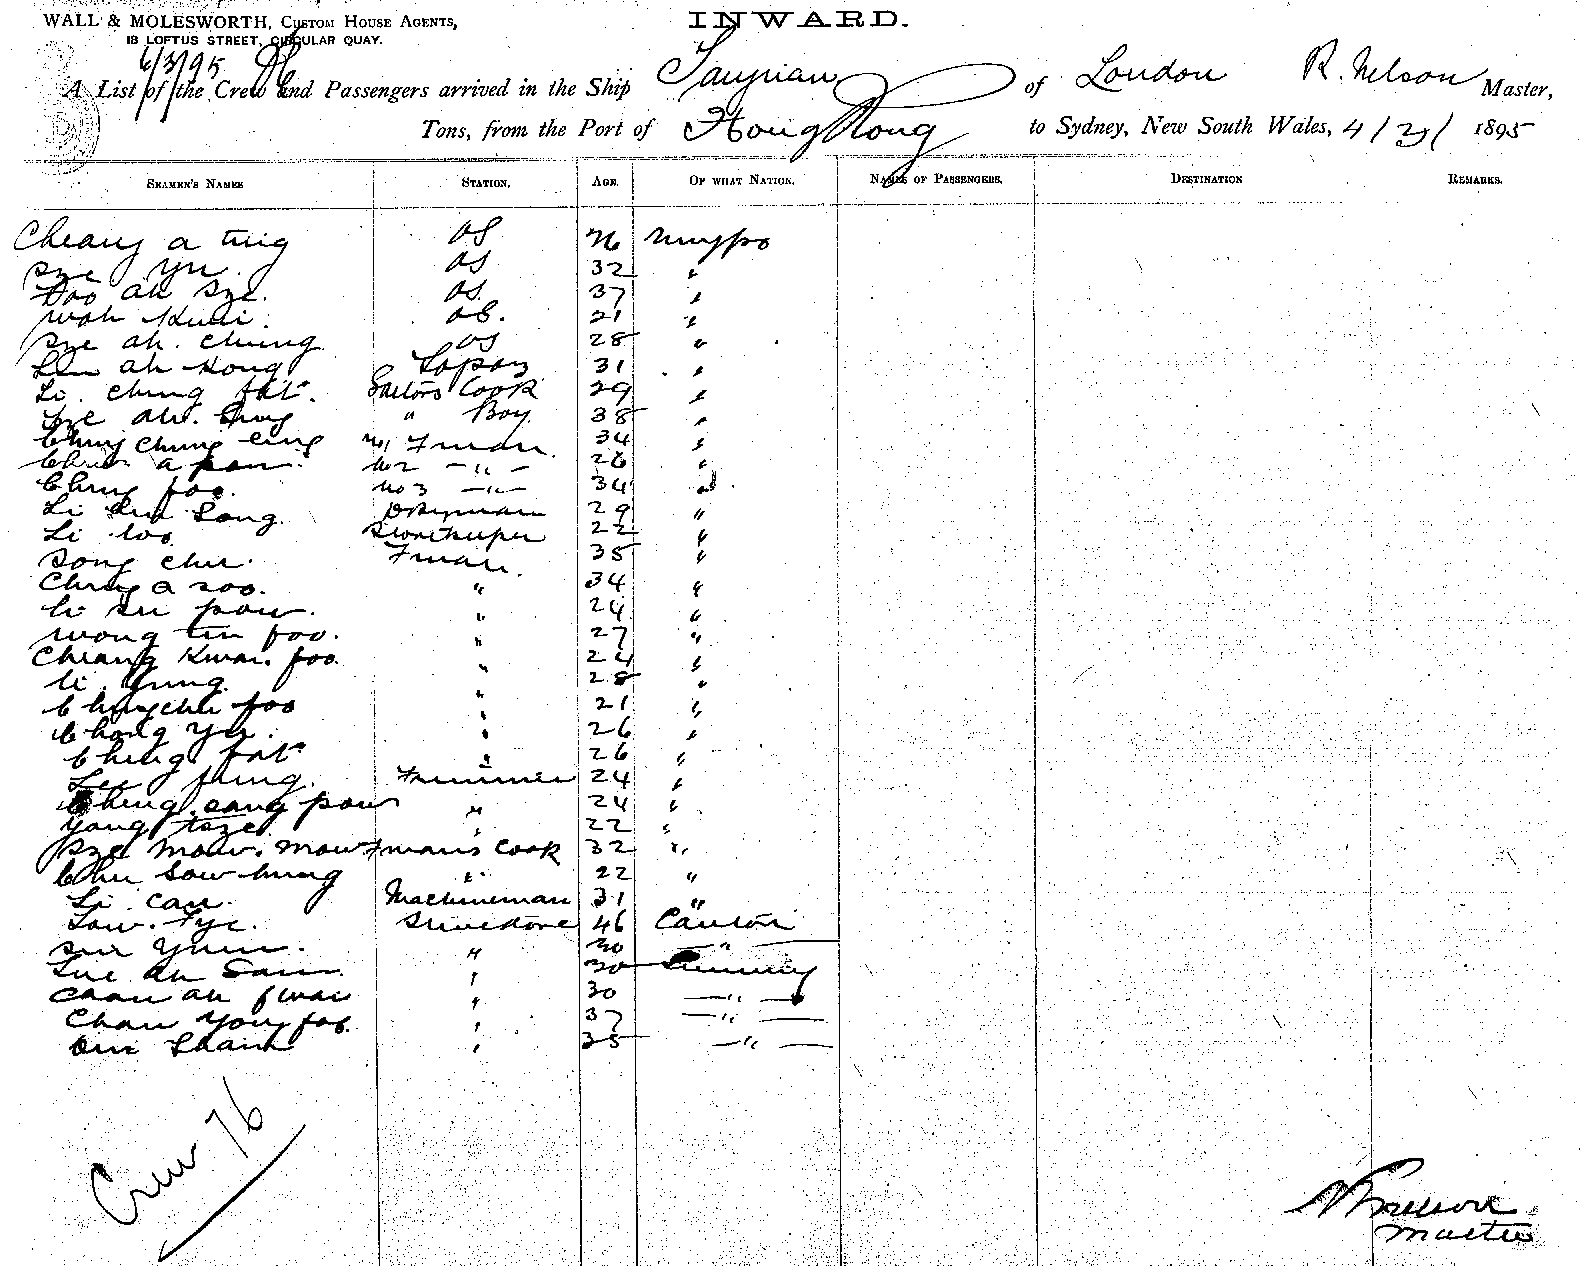 WALL & MOLESWORTH, CUSTOM HOUSE AGENTS,
18 LOFTUS STREET, CIRCULAR QUAY.
INWARD.
6/3/95
A List of the Crew and Passengers arrived in the Ship Taiyuan of London R. Nelson Master,
Tons, from the Port of Hong Kong to Sydney, New South Wales, 4/3/ 1895
SEAMEN'S NAMES STATION. AGE. OF WHAT NATION. NAMES OF PASSENGERS. DESTINATION REMARKS.
Cheang a ting OS 26 Ningpo
Sze yu OS 32 "
Doo ah Sze. OS. 37 "
Woh Kuei. OS. 21 "
Sze ah. Chung OS 28 "
Lin ah Kong 31 "
Li. Ching fat. Sailors Cook 29 "
Sze ah. " Boy. 38 "
Ching Chung No 1 Fman. 34 "
a pow. No 2 — " — 26 "
Ching foo. No 3 — " — 34 "
Li Song. 29 "
Li Storekeeper 22 "
Song chu. Fman. 35 "
Ching a soo. " 34 "
Li su pow. " 24 "
Wong tin foo. " 27 "
Cheang Kwai. foo. " 24 "
Li Yung. " 28 "
Chingchu foo " 21 "
Chong Yu. " 26 "
Ching fat " 26 "
Lee fung. Trimmer 24 "
Ching sang pow " 24 "
Yang tsze. " 22 "
Sze Mow. Mow Fman's Cook 32 "
Chu Sow hung " 22 "
Li can. Machineman 31 "
Low. Fye. Stevedore 46 Canton
Yuen. " 30 — " —
ah Sam. " 30
Chan ah " 30 — " —
Chan Yow fat. " 37 — " —
" 35 — " —
Crew 76
R Nelson
Master